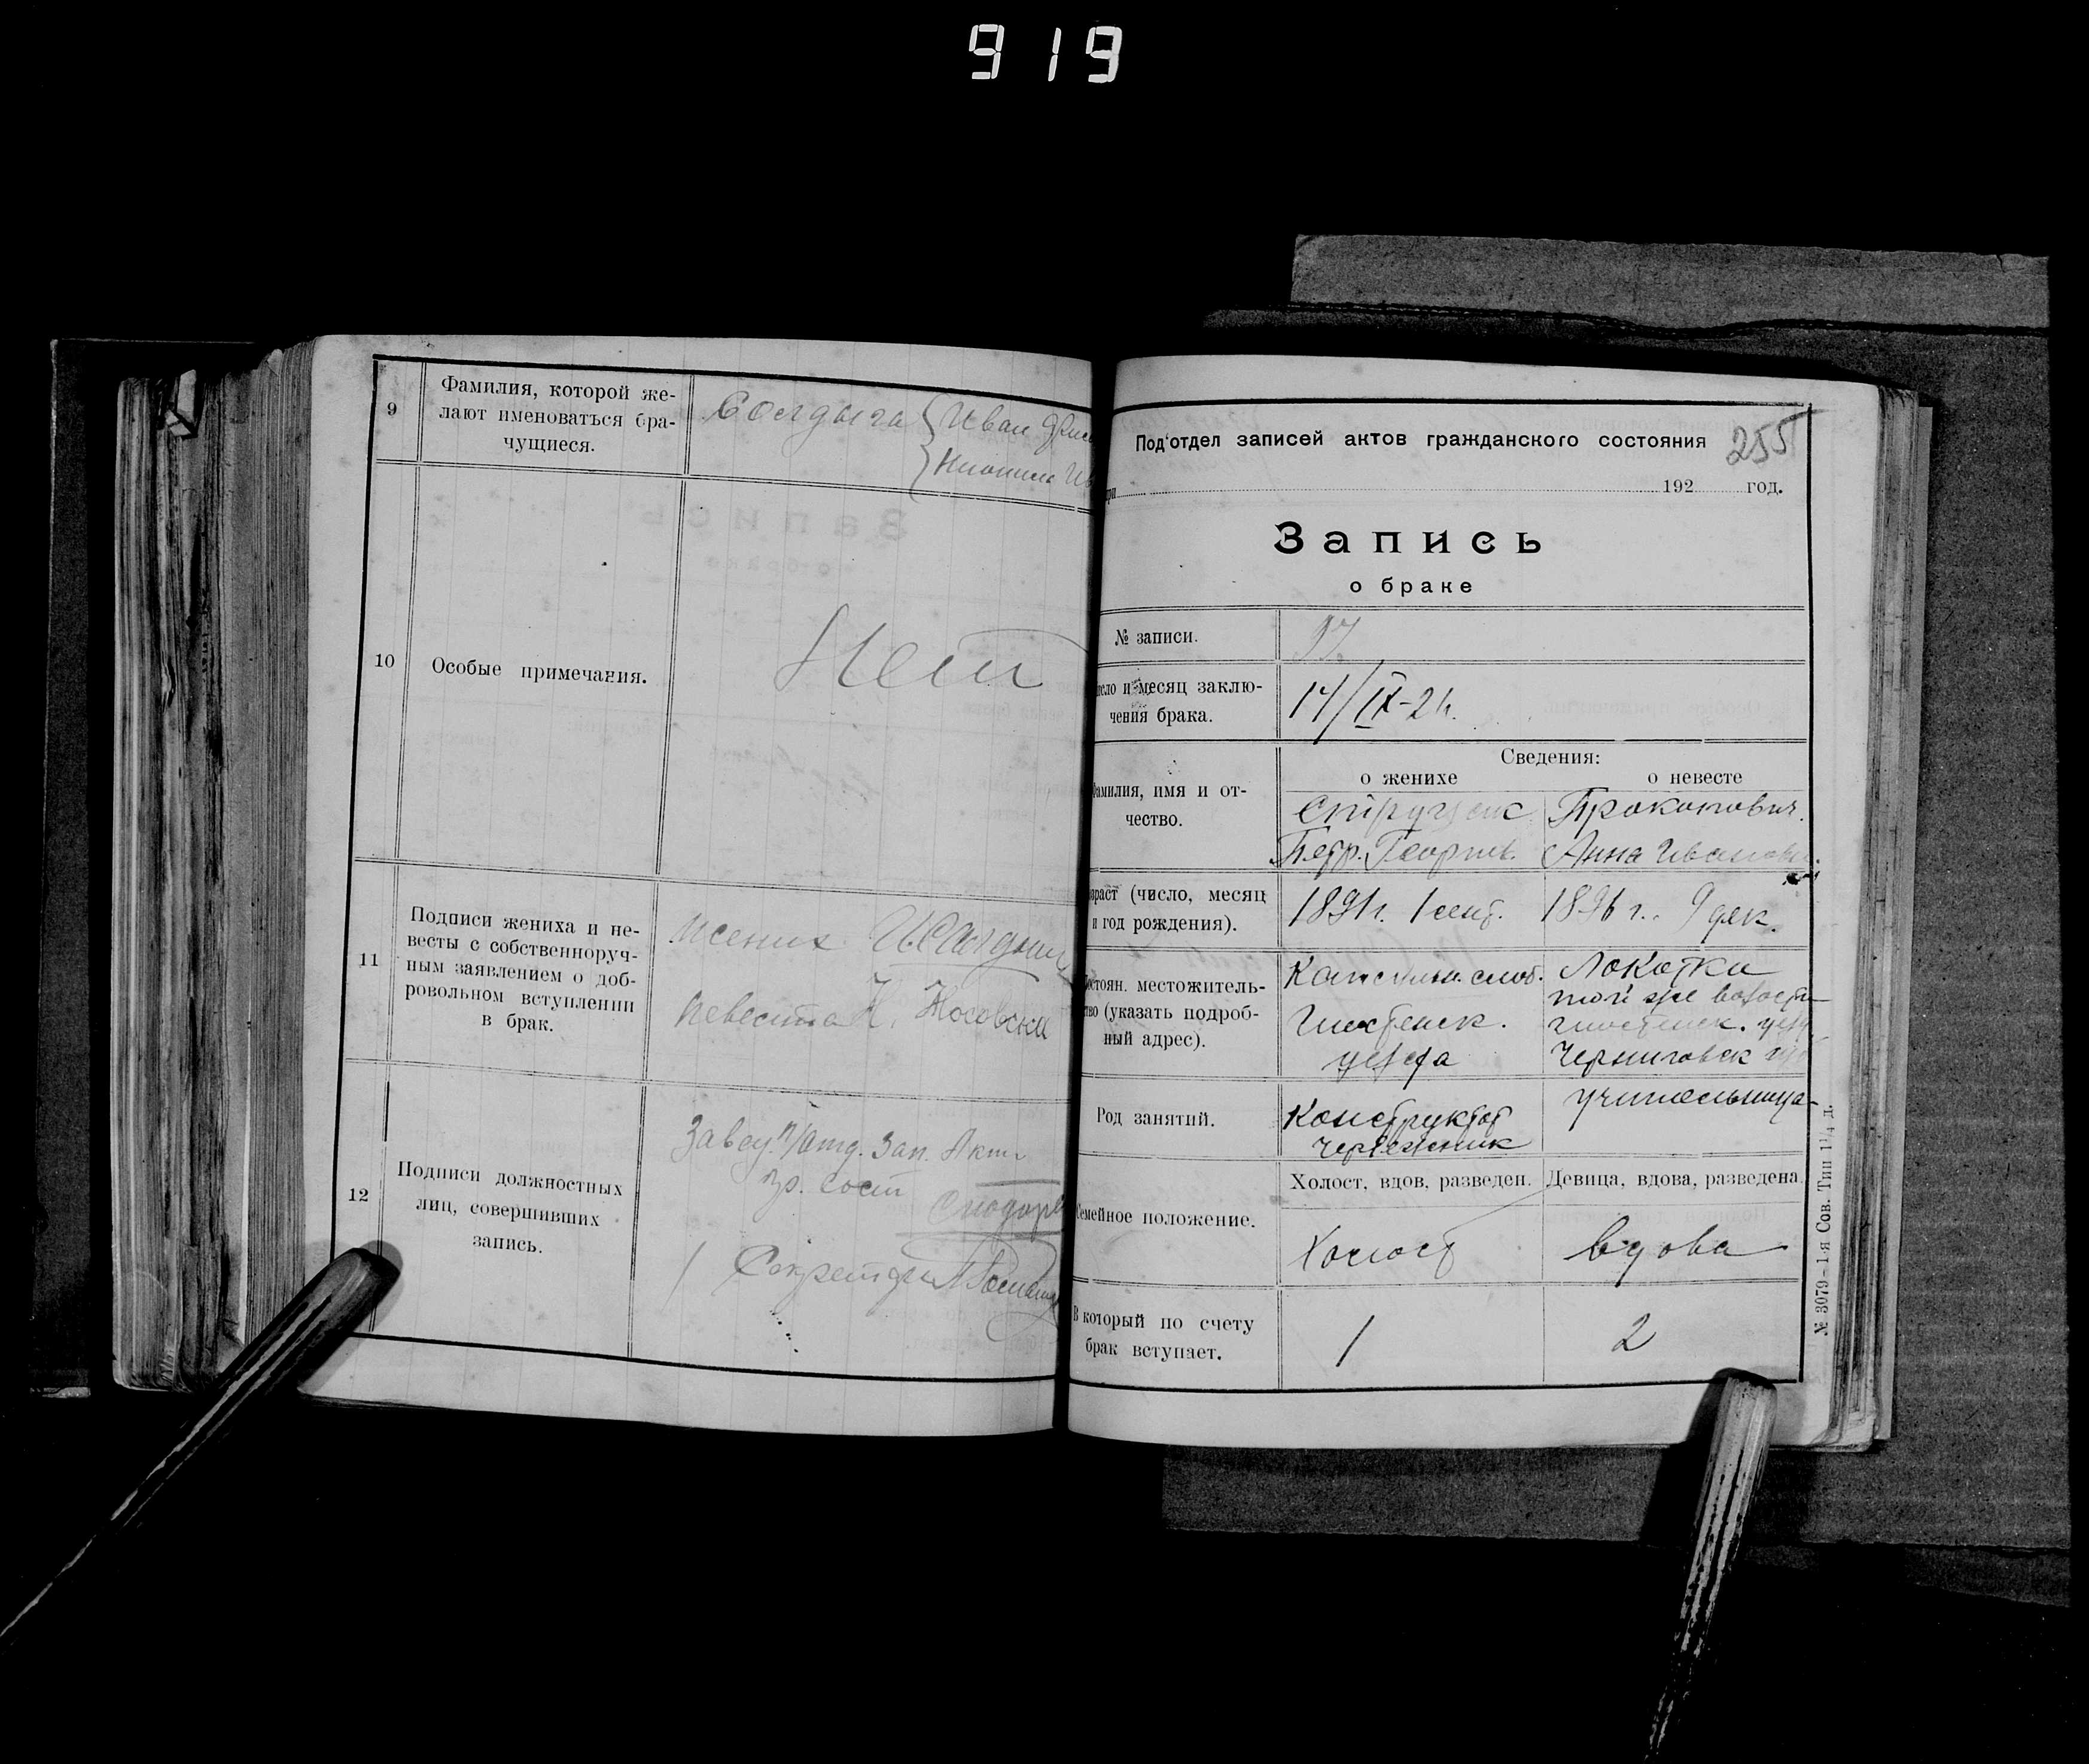 919
9
Фамилия, которой же-
лают именоваться бра-
чущиеся.
Иван
10
Особые примечания.
Нет
11
Подписи жениха и не-
весты с собственноруч-
ным заявлением о доб-
ровольном вступлении
в брак.
жених
невеста Н. Носовский
12
Подписи должностных
лиц, совершивших
запись.
Завед. п/отд. Зап. Акт.
гр. сост
Секретарь
Под'отдел записей актов гражданского состояния
255
при 192 год.
Запись
о браке
№ записи.
97
число и месяц заклю-
чения брака.
14/IX-21.
Сведения:
о женихе
о невесте
Фамилия, имя и от-
чество.
Петр. Георгиев.
Прокопович.
Анна Иванов
Возраст (число, месяц
и год рождения).
1891 г. 1 сент.
1896 г. 9 дек.
Постоян. местожитель-
ство (указать подроб-
ный адрес).
слоб.
уезда
Локотки
той же волости
уезд
Черниговск
Род занятий.
Конструктор
чертежник
учительница
Семейное положение.
Холост, вдов, разведен.
Девица, вдова, разведена.
Холост
вдова
В который по счету
брак вступает.
1
2
№ 3079-1-я Сов. Тип 1¼ д.